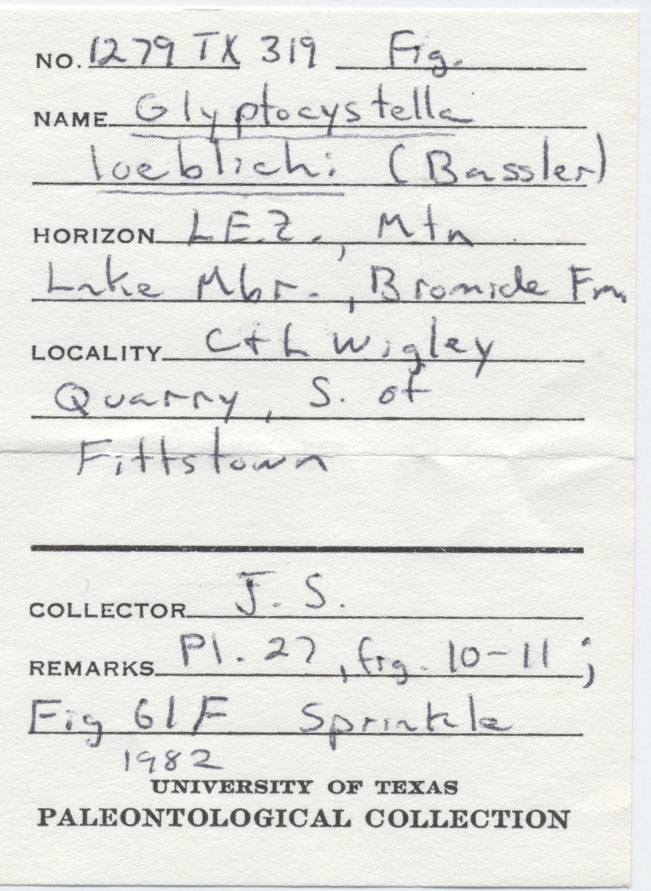 NO. 1279 TX 319 Fig.
NAME Glyptocystella
loeblichi (Bassler)
HORIZON L.E.Z., Mtn
Lake Mbr., Bromide Fm.
LOCALITY C+L Wigley
Quarry, S. of
Fittstown
COLLECTOR J. S.
REMARKS Pl. 27, fig. 10-11;
Fig 61F Sprinkle
1982
UNIVERSITY OF TEXAS
PALEONTOLOGICAL COLLECTION